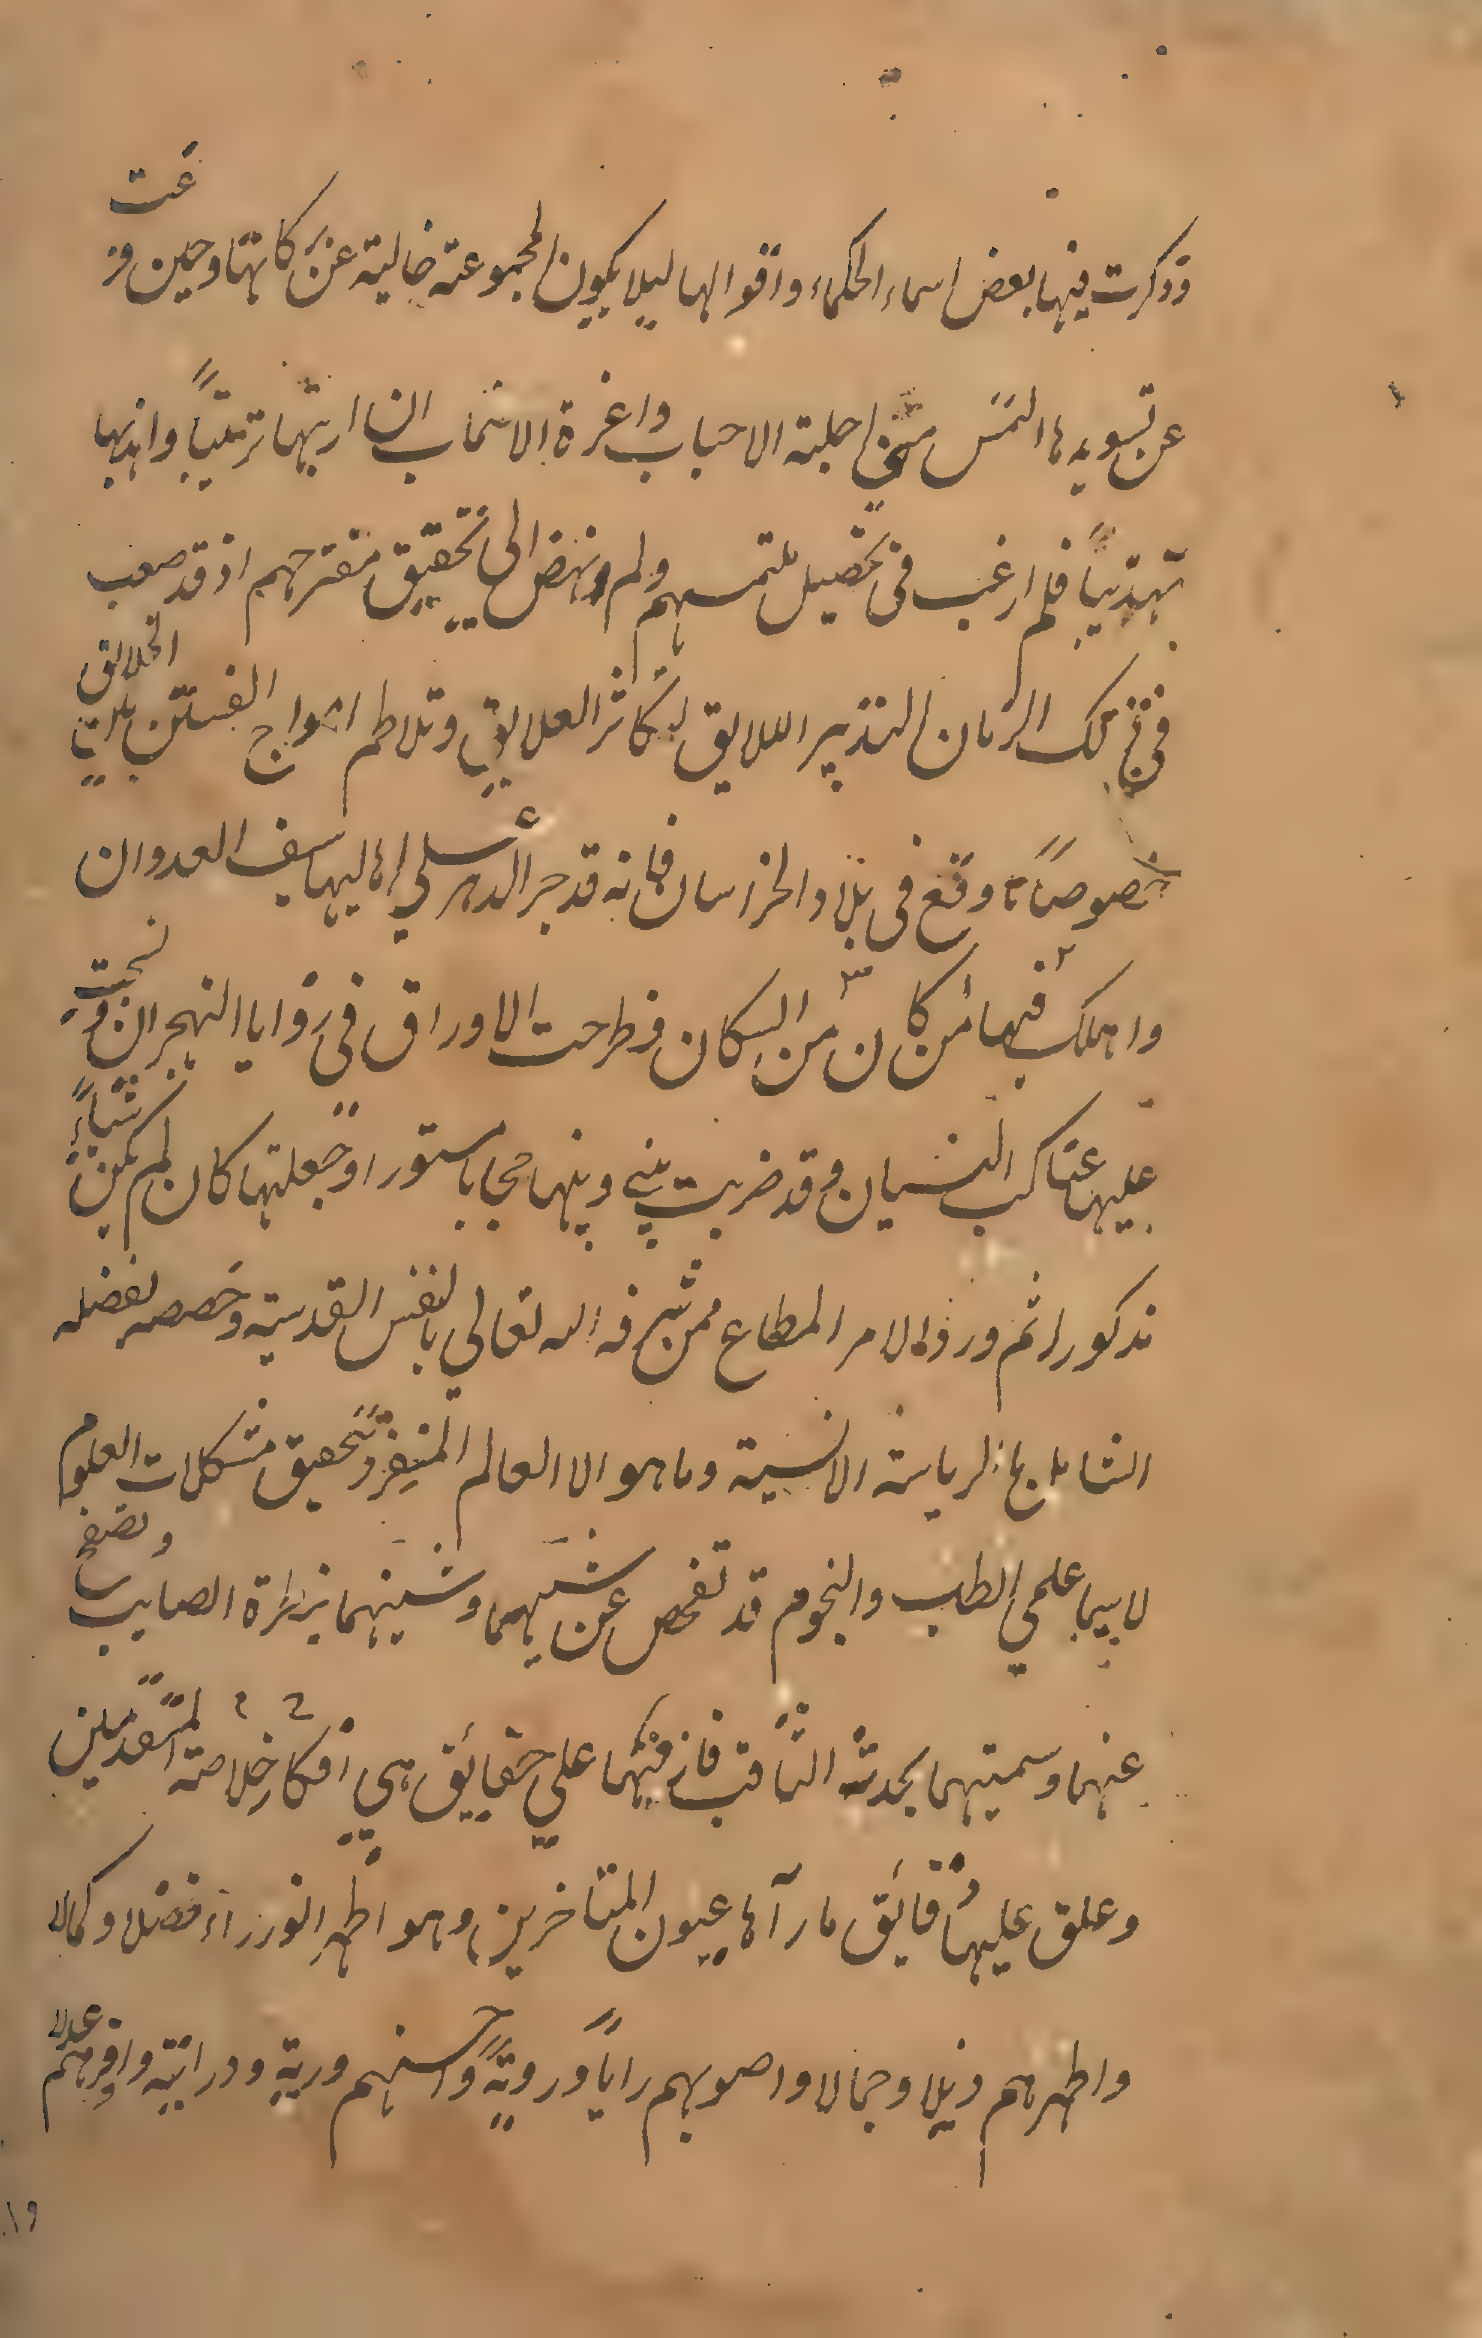 وذكرت فيها بعض اسماء الحكماء واقوالها ليلا يكون المجموعة خالية عن نكاتها وحين فرغت
عن تسويدها التمس مني اجلة الاحباب واعزة الاصحاب ان ارتبها ترتيبا واهذبها
تهذيبا فلم ارغب في تحصيل ملتمسهم ولم انهض الى تحقيق مقترحهم اذ قد صعب
في ذلك الزمان التدبير اللايق لتكاثر العلايق وتلاطم امواج الفتن بين الخلايق
خصوصا ما وقع في بلاد الخراسان فانه قد جر الدهر على اهاليها سيف العدوان
واهلك فيها من كان من السكان فطرحت الاوراق في زوايا الهجران ونسجت
عليها عناكب النسيان وقد ضربت بيني وبينها حجابا مستورا وجعلتها كان لم يكن شياء
مذكورا ثم ورد الامر المطاع ممن شرفه الله تعالي بالنفس القدسية وخصصه بفضله
الشامل بالرياسة الانسية وما هو الا العالم المنفرد بتحقيق مشكلات العلوم
لا سيما علمي الطب والنجوم قد تفحص عن شيهما وشينهما بنظرة الصايب وتصفح
عنهما وسميتهما بحدثه الثاقب فاز فيهما علي حقايق هي افكار خلاصة المتقدمين
وعلق عليها دقايق ما رآها عيون المتاخرين وهو اطهر الوزراء فضلا وكمالا
واطهرهم ذيلا وجمالا واصوبهم رايا وروية واحسنهم ورية ودراية واوفرهم عدلا